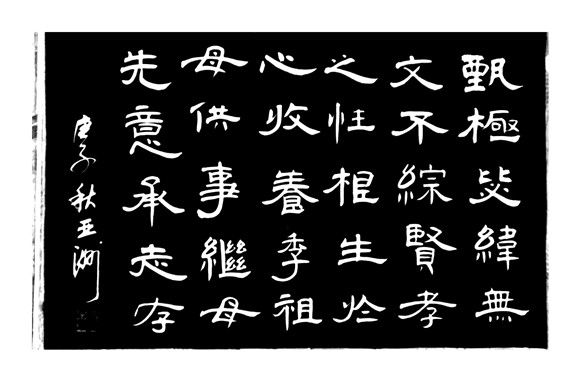 甄極毖緯無
文不綜賢孝
之性根生於
心收養季祖
母供事繼母
先意承志存
庚子秋亚洲